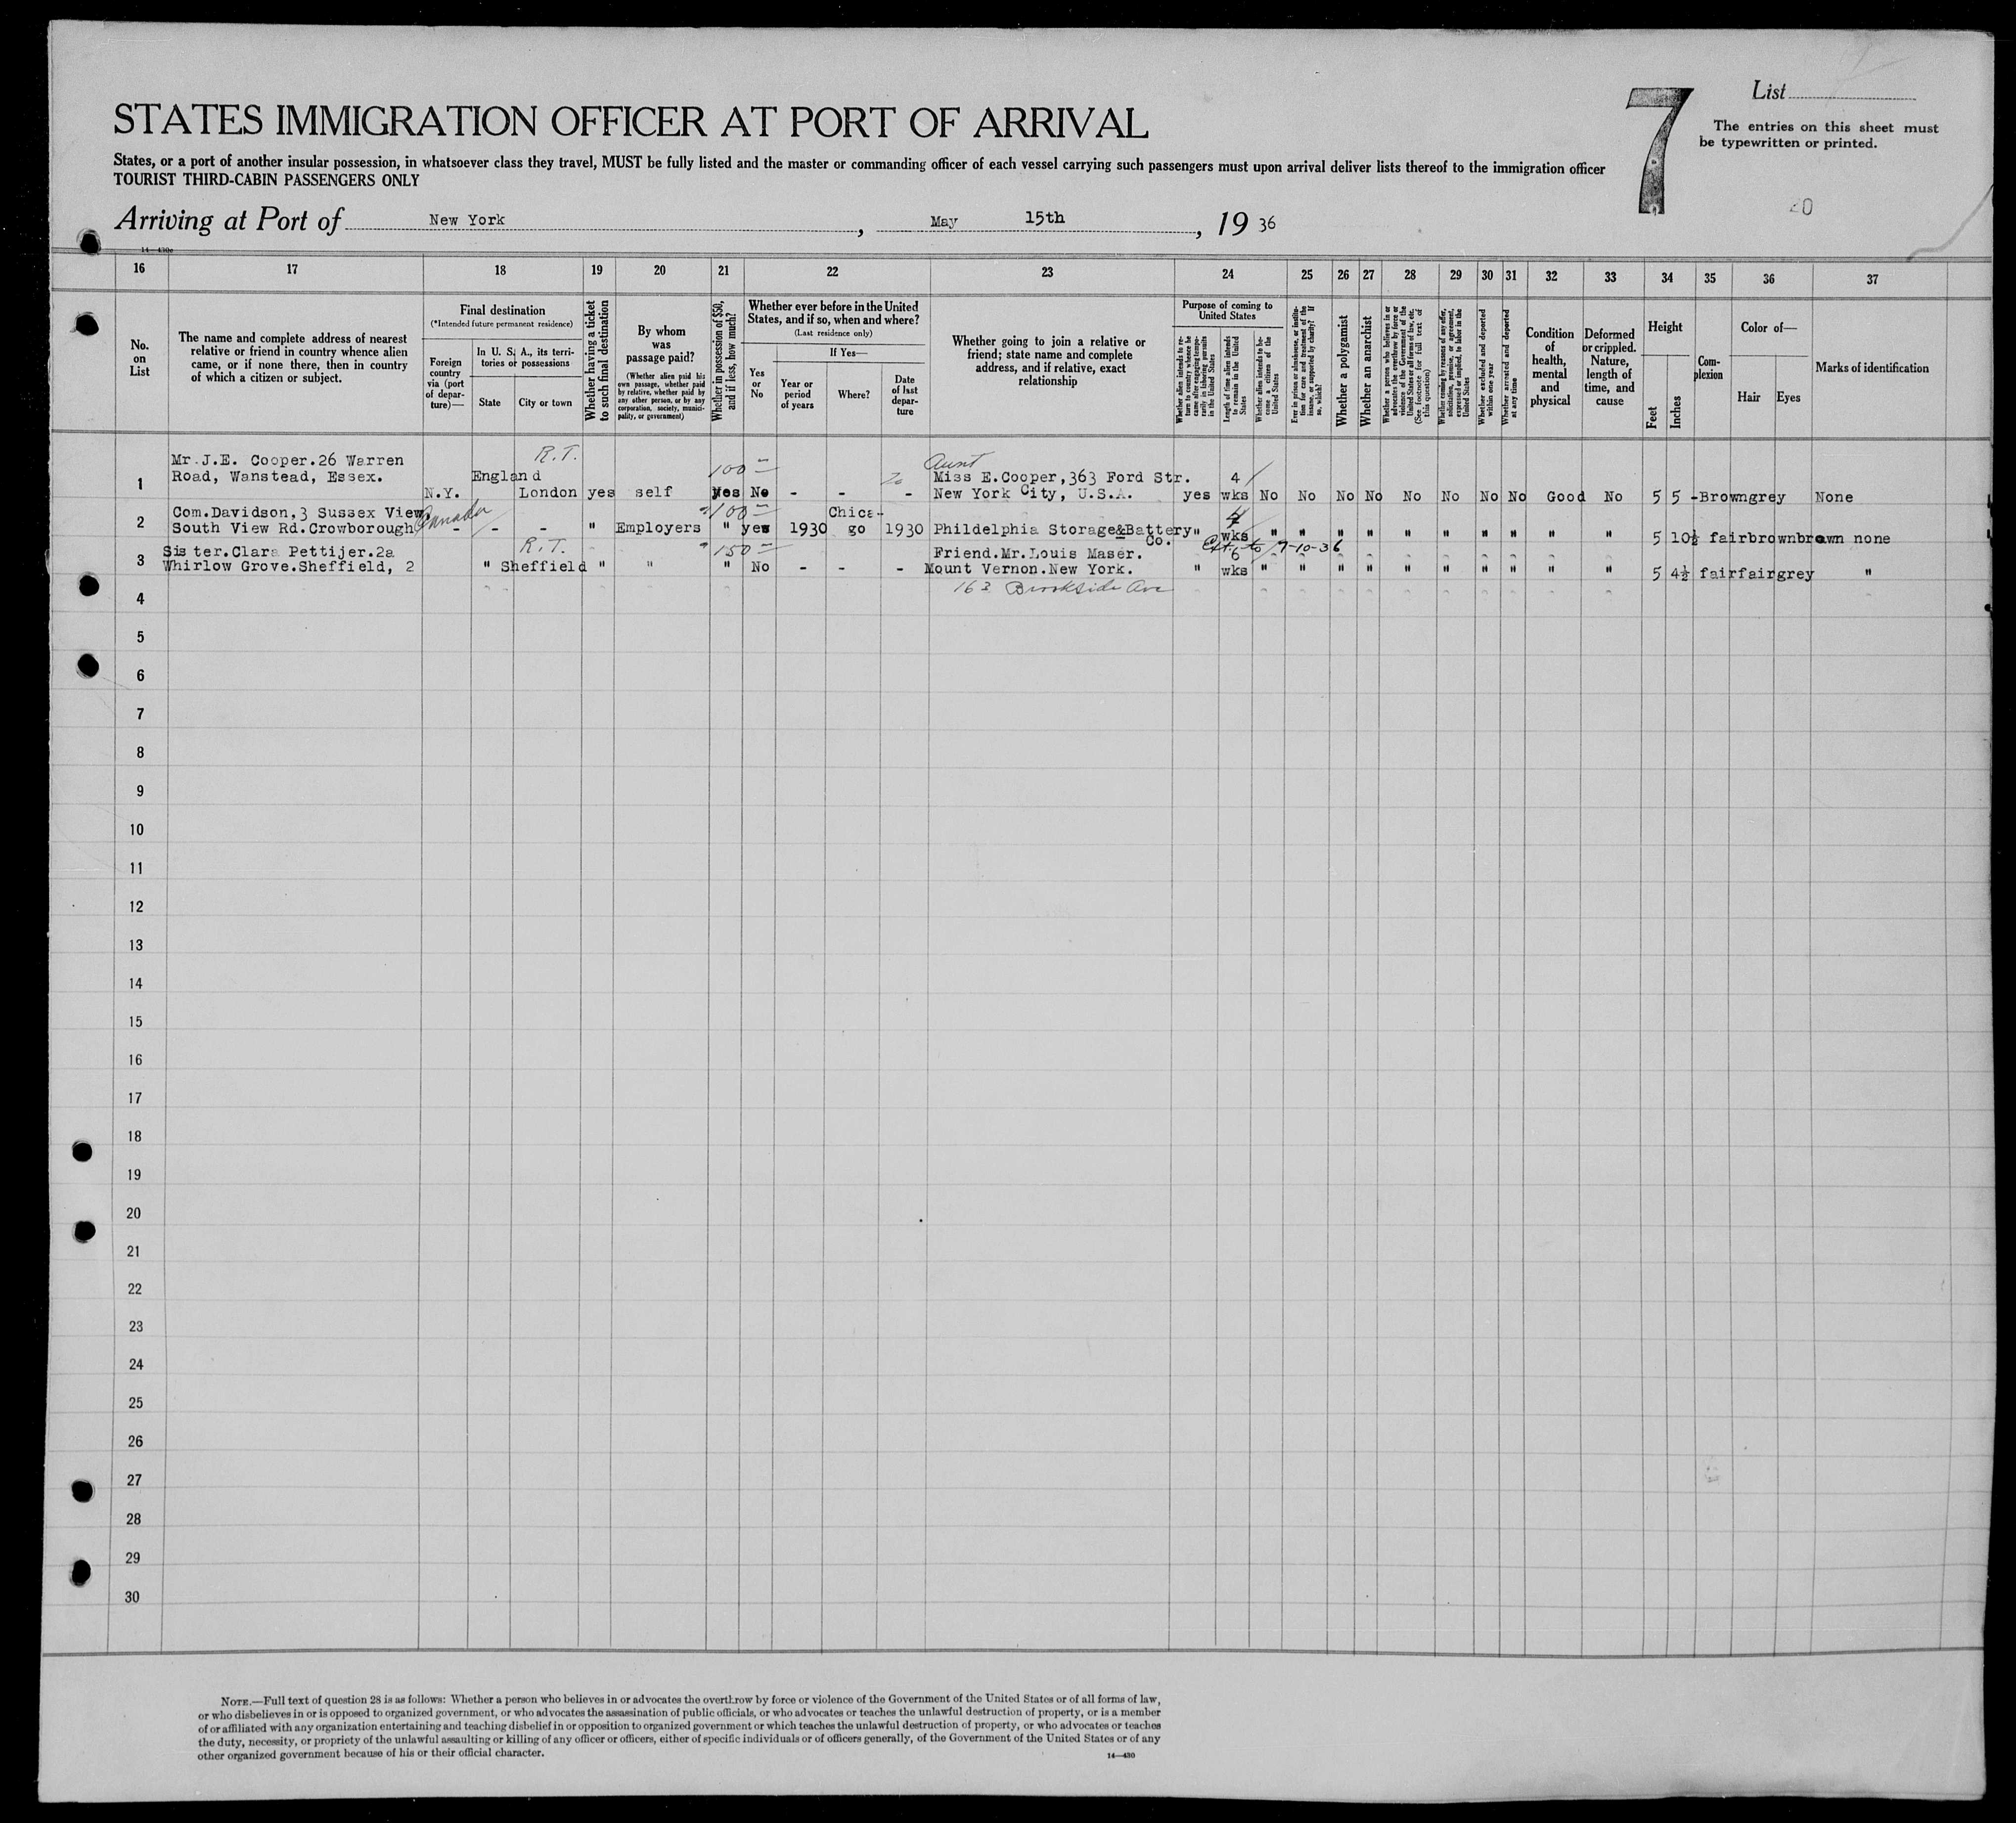 List
7
The entries on this sheet must
be typewritten or printed.
STATES IMMIGRATION OFFICER AT PORT OF ARRIVAL
States, or a port of another insular possession, in whatsoever class they travel, MUST be fully listed and the master or commanding officer of each vessel carrying such passengers must upon arrival deliver lists thereof to the immigration officer
TOURIST THIRD-CABIN PASSENGERS ONLY
20
Arriving at Port of New York, May 15th, 19 36
14—430c
16 17 18 19 20 21 22 23 24 25 26 27 28 29 30 31 32 33 34 35 36 37
No.
on
List
The name and complete address of nearest
relative or friend in country whence alien
came, or if none there, then in country
of which a citizen or subject.
Final destination
(*Intended future permanent residence)
Foreign
country
via (port
of depar-
ture)—
In U. S. A., its terri-
tories or possessions
State
City or town
Whether having a ticket
to such final destination
By whom
was
passage paid?
(Whether alien paid his
own passage, whether paid
by relative, whether paid by
any other person, or by any
corporation, society, munici-
pality, or government)
Whether in possession of $50,
and if less, how much?
Whether ever before in the United
States, and if so, when and where?
(Last residence only)
Yes
or
No
If Yes—
Year or
period
of years
Where?
Date
of last
depar-
ture
Whether going to join a relative or
friend; state name and complete
address, and if relative, exact
relationship
Purpose of coming to
United States
Whether alien intends to re-
turn to country whence he
came after engaging tempo-
rarily in laboring pursuits
in the United States
Length of time alien intends
to remain in the United
States
Whether alien intends to be-
come a citizen of the
United States
Ever in prison or almshouse, or institu-
tion for care and treatment of the
insane, or supported by charity? If
so, which?
Whether a polygamist
Whether an anarchist
Whether a person who believes in or
advocates the overthrow by force or
violence of the Government of the
United States or all forms of law, etc.
(See footnote for full text of
this question)
Whether coming by reasons of any offer,
solicitation, promise, or agreement,
expressed or implied, to labor in the
United States
Whether excluded and deported
within one year
Whether arrested and deported
at any time
Condition
of
health,
mental
and
physical
Deformed
or crippled.
Nature,
length of
time, and
cause
Height
Feet
Inches
Com-
plexion
Color of—
Hair
Eyes
Marks of identification
R.T. 100 Aunt
Mr.J.E. Cooper.26 Warren
Road, Wanstead, Essex. England Miss E.Cooper,363 Ford Str. 4
1 N.Y. London yes self yes No - - - New York City, U.S.A. yes wks No No No No No No No No Good No 5 5 -Browngrey None
Com.Davidson,3 Sussex View. Canada 100 Chica- 4
2 South View Rd.Crowborough - - - " Employers " yes 1930 go 1930 Phildelphia Storage&Battery " wks " " " " " " " " " " 5 10½ fairbrownbrown none
Co.
R.T. 150 Ext. to 7-10-36
3 Sister.Clara Pettijer.2a Friend.Mr.Louis Maser. 6
Whirlow Grove.Sheffield, 2 " Sheffield " " " No - - - Mount Vernon.New York. " wks " " " " " " " " " " 5 4½ fairfairgrey "
163 Brookside Ave
4
5
6
7
8
9
10
11
12
13
14
15
16
17
18
19
20
21
22
23
24
25
26
27
28
29
30
NOTE.—Full text of question 28 is as follows: Whether a person who believes in or advocates the overthrow by force or violence of the Government of the United States or of all forms of law,
or who disbelieves in or is opposed to organized government, or who advocates the assassination of public officials, or who advocates or teaches the unlawful destruction of property, or is a member
of or affiliated with any organization entertaining and teaching disbelief in or opposition to organized government or which teaches the unlawful destruction of property, or who advocates or teaches
the duty, necessity, or propriety of the unlawful assaulting or killing of any officer or officers, either of specific individuals or of officers generally, of the Government of the United States or of any
other organized government because of his or their official character.
14—430